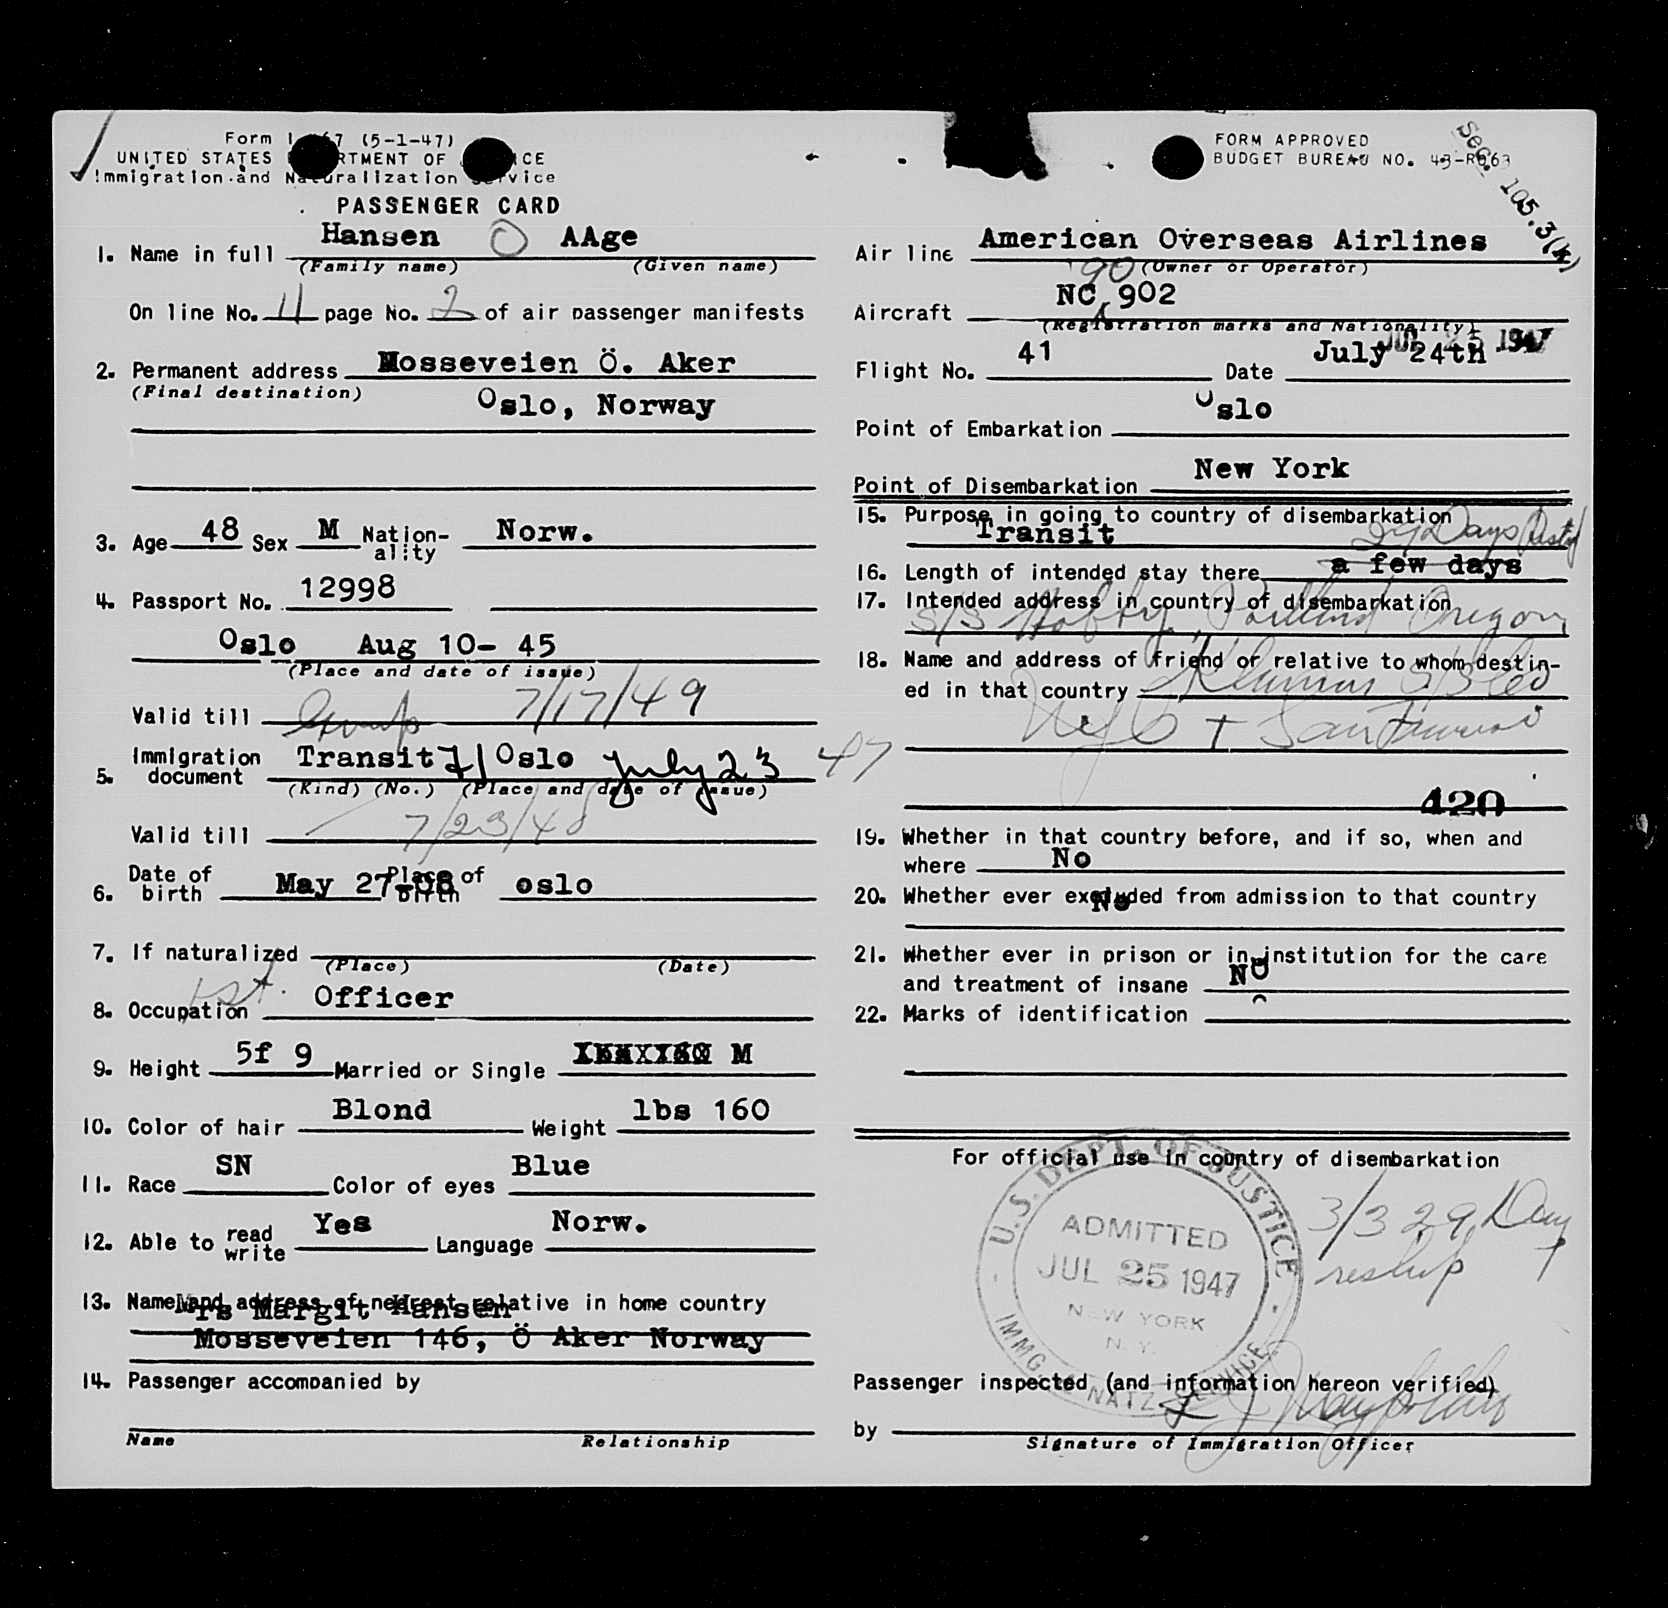 Form I 67 (5-1-47)
UNITED STATES RTMENT OF CE
Immigration and Naturalization Service
PASSENGER CARD
1. Name in full Hansen O AAge
(Family name) (Given name)
On line No. 11 page No. 2 of air passenger manifests
2. Permanent address Mosseveien Ö. Aker
(Final destination)
Oslo, Norway
3. Age 48 Sex M Nation-ality Norw.
4. Passport No. 12998
Oslo Aug 10- 45
(Place and date of issue)
Valid till 7/17/49
5. Immigration document Transit 71 Oslo July 23 47
(Kind) (No.) (Place and date of issue)
Valid till 7/23/48
6. Date of birth May 27-08 Place of birth oslo
7. If naturalized
(Place) (Date)
1st.
8. Occupation Officer
9. Height 5f 9 Married or Single M
10. Color of hair Blond Weight lbs 160
11. Race SN Color of eyes Blue
12. Able to read write Yes Language Norw.
13. Name and address of nearest relative in home country
Mrs Margit Hansen
Mosseveien 146, Ö Aker Norway
14. Passenger accompanied by
Name Relationship
FORM APPROVED
BUDGET BUREAU NO. 43-R063
Sec. 105.3(k)
Air line American Overseas Airlines
(Owner or Operator)
90
Aircraft NC 902
(Registration marks and Nationality)
JUL 25 1947
Flight No. 41 Date July 24th
Point of Embarkation Oslo
Point of Disembarkation New York
15. Purpose in going to country of disembarkation
Transit
29 Days
16. Length of intended stay there a few days
17. Intended address in country of disembarkation
S/S Portland Oregon
18. Name and address of friend or relative to whom destin-
ed in that country
+ San Francisco
420
19. Whether in that country before, and if so, when and
where No
20. Whether ever excluded from admission to that country
No
21. Whether ever in prison or in institution for the care
and treatment of insane NO
22. Marks of identification
For official use in country of disembarkation
U.S. DEPT. OF JUSTICE
ADMITTED
JUL 25 1947
NEW YORK
N.Y.
IMMG. & NATZ. SERVICE
3/3 29 Day
reship
Passenger inspected (and information hereon verified)
by
Signature of Immigration Officer